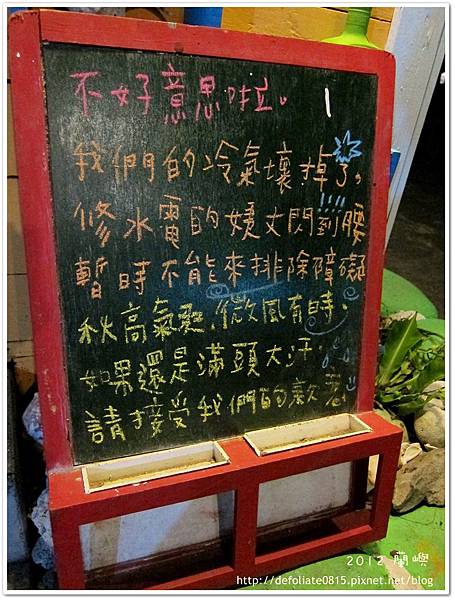 不好意思啦。
我們的冷氣壞掉了,
修水電的姨丈閃到腰
暫時不能來排除障礙
秋高氣爽,微風有時,
如果還是滿頭大汗,
請接受我們的歉意
2012 蘭嶼
http://defoliate0815.pixnet.net/blog